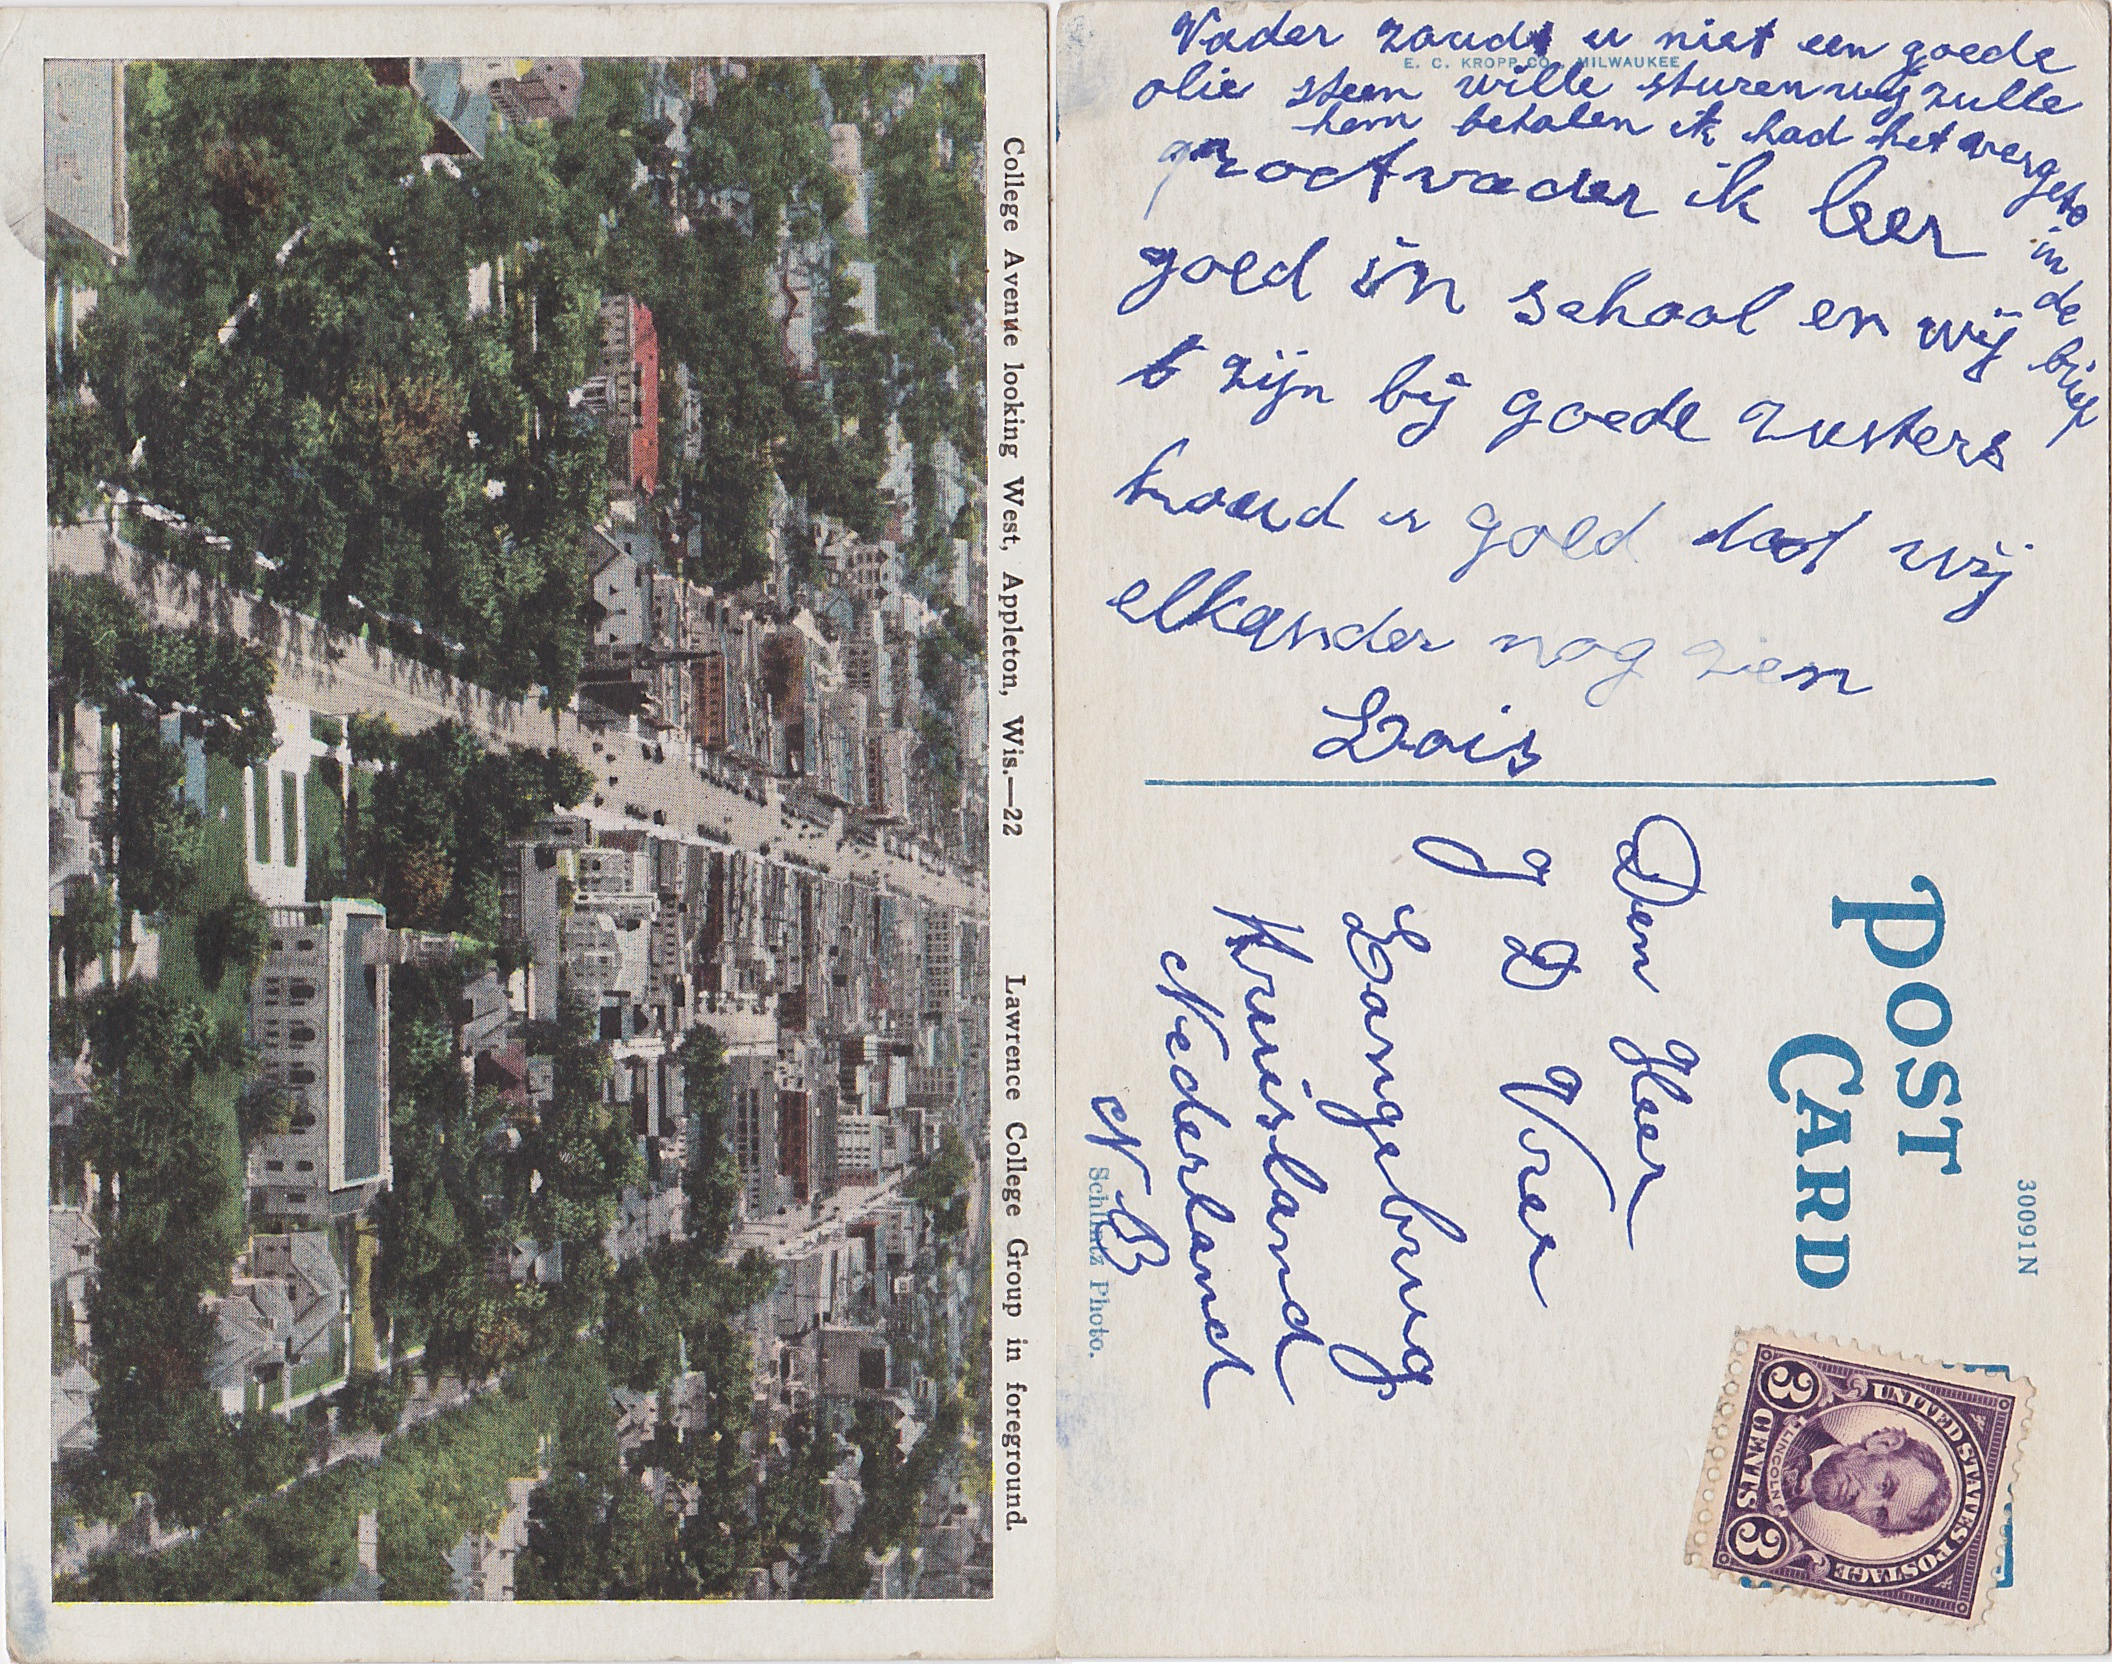 College Avenue looking West, Appleton, Wis.—22
Lawrence College Group in foreground.
Vader zoudt u niet een goede
E. C. KROPP CO., MILWAUKEE
olie steen wille sturen wij zulle
hem betalen ik had het vergete
in de brief
grootvader ik leer
goed in school en wij
zijn bij goede zusters
houd u goed dat wij
elkander nog zien
Lois
POST
CARD
30091N
Den Heer
J D Vree
Langebrug
Kruisland
Nederland
N B
Schlintz Photo.
UNITED STATES POSTAGE
LINCOLN
3 CENTS 3